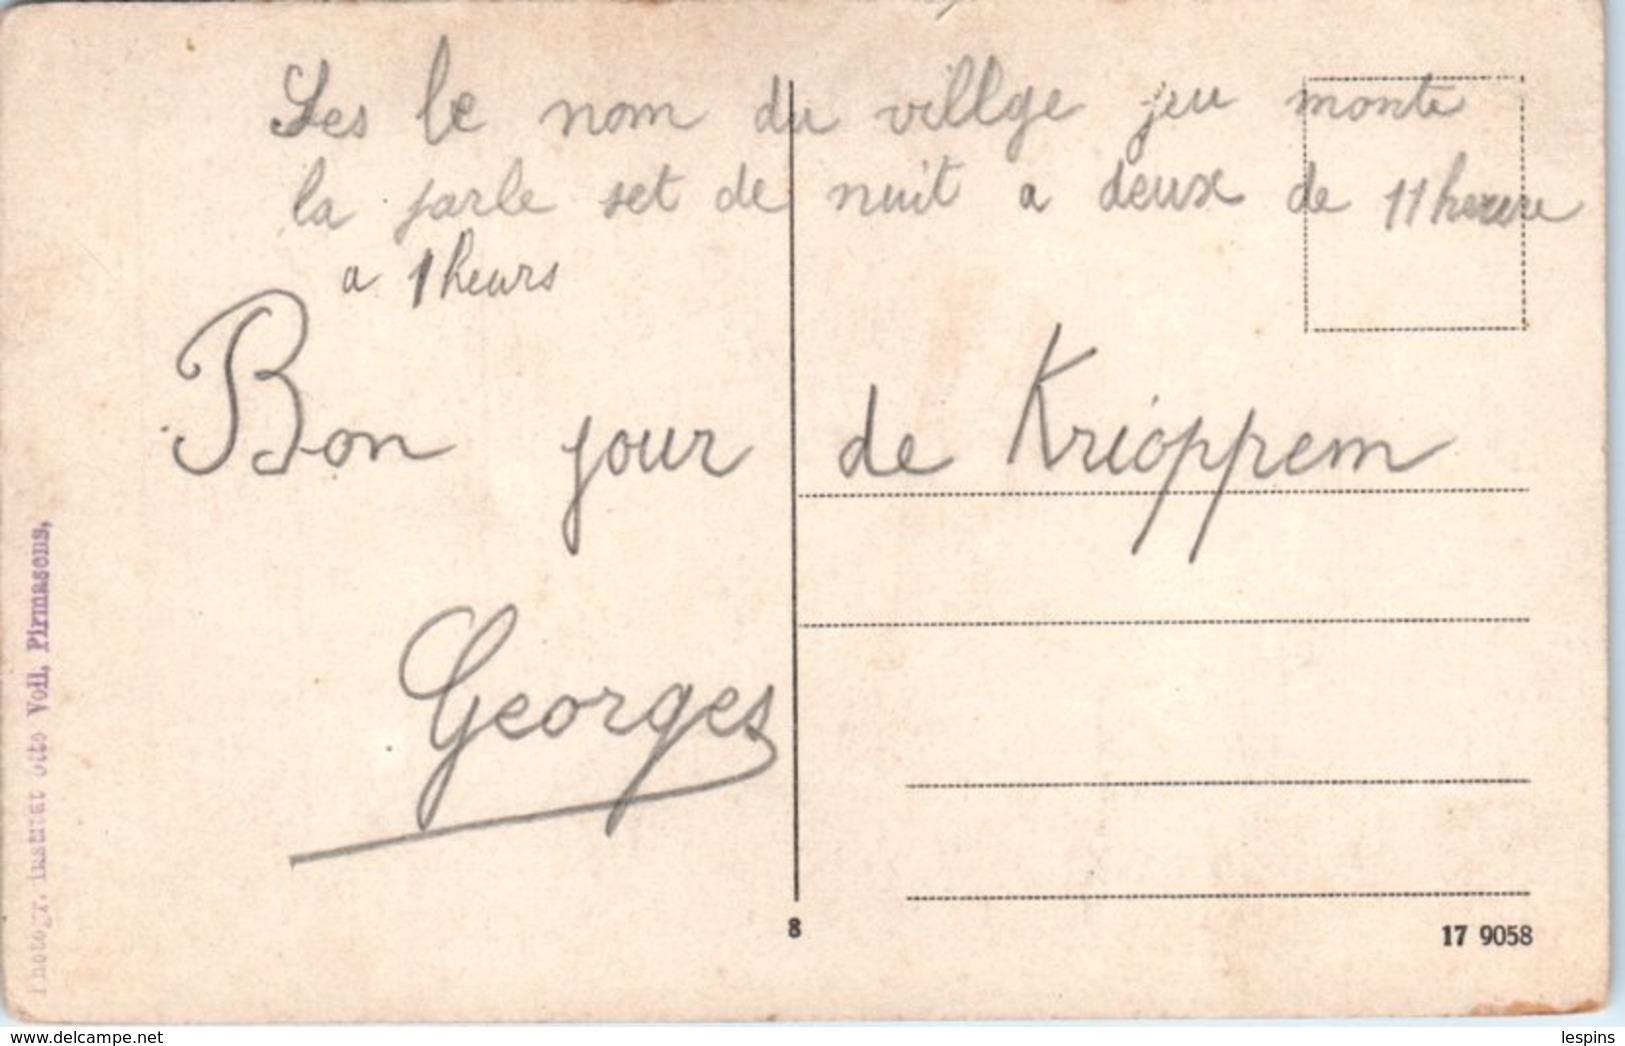 Ses le nom du villge jeu monte
la parle set de nuit a deux de 11 heure
a 1 heurs
Bon jour de Krióppem
Georges
Photogr. Institut Otto Voll, Pirmasens,
8
17 9058
delcampe.net
lespins